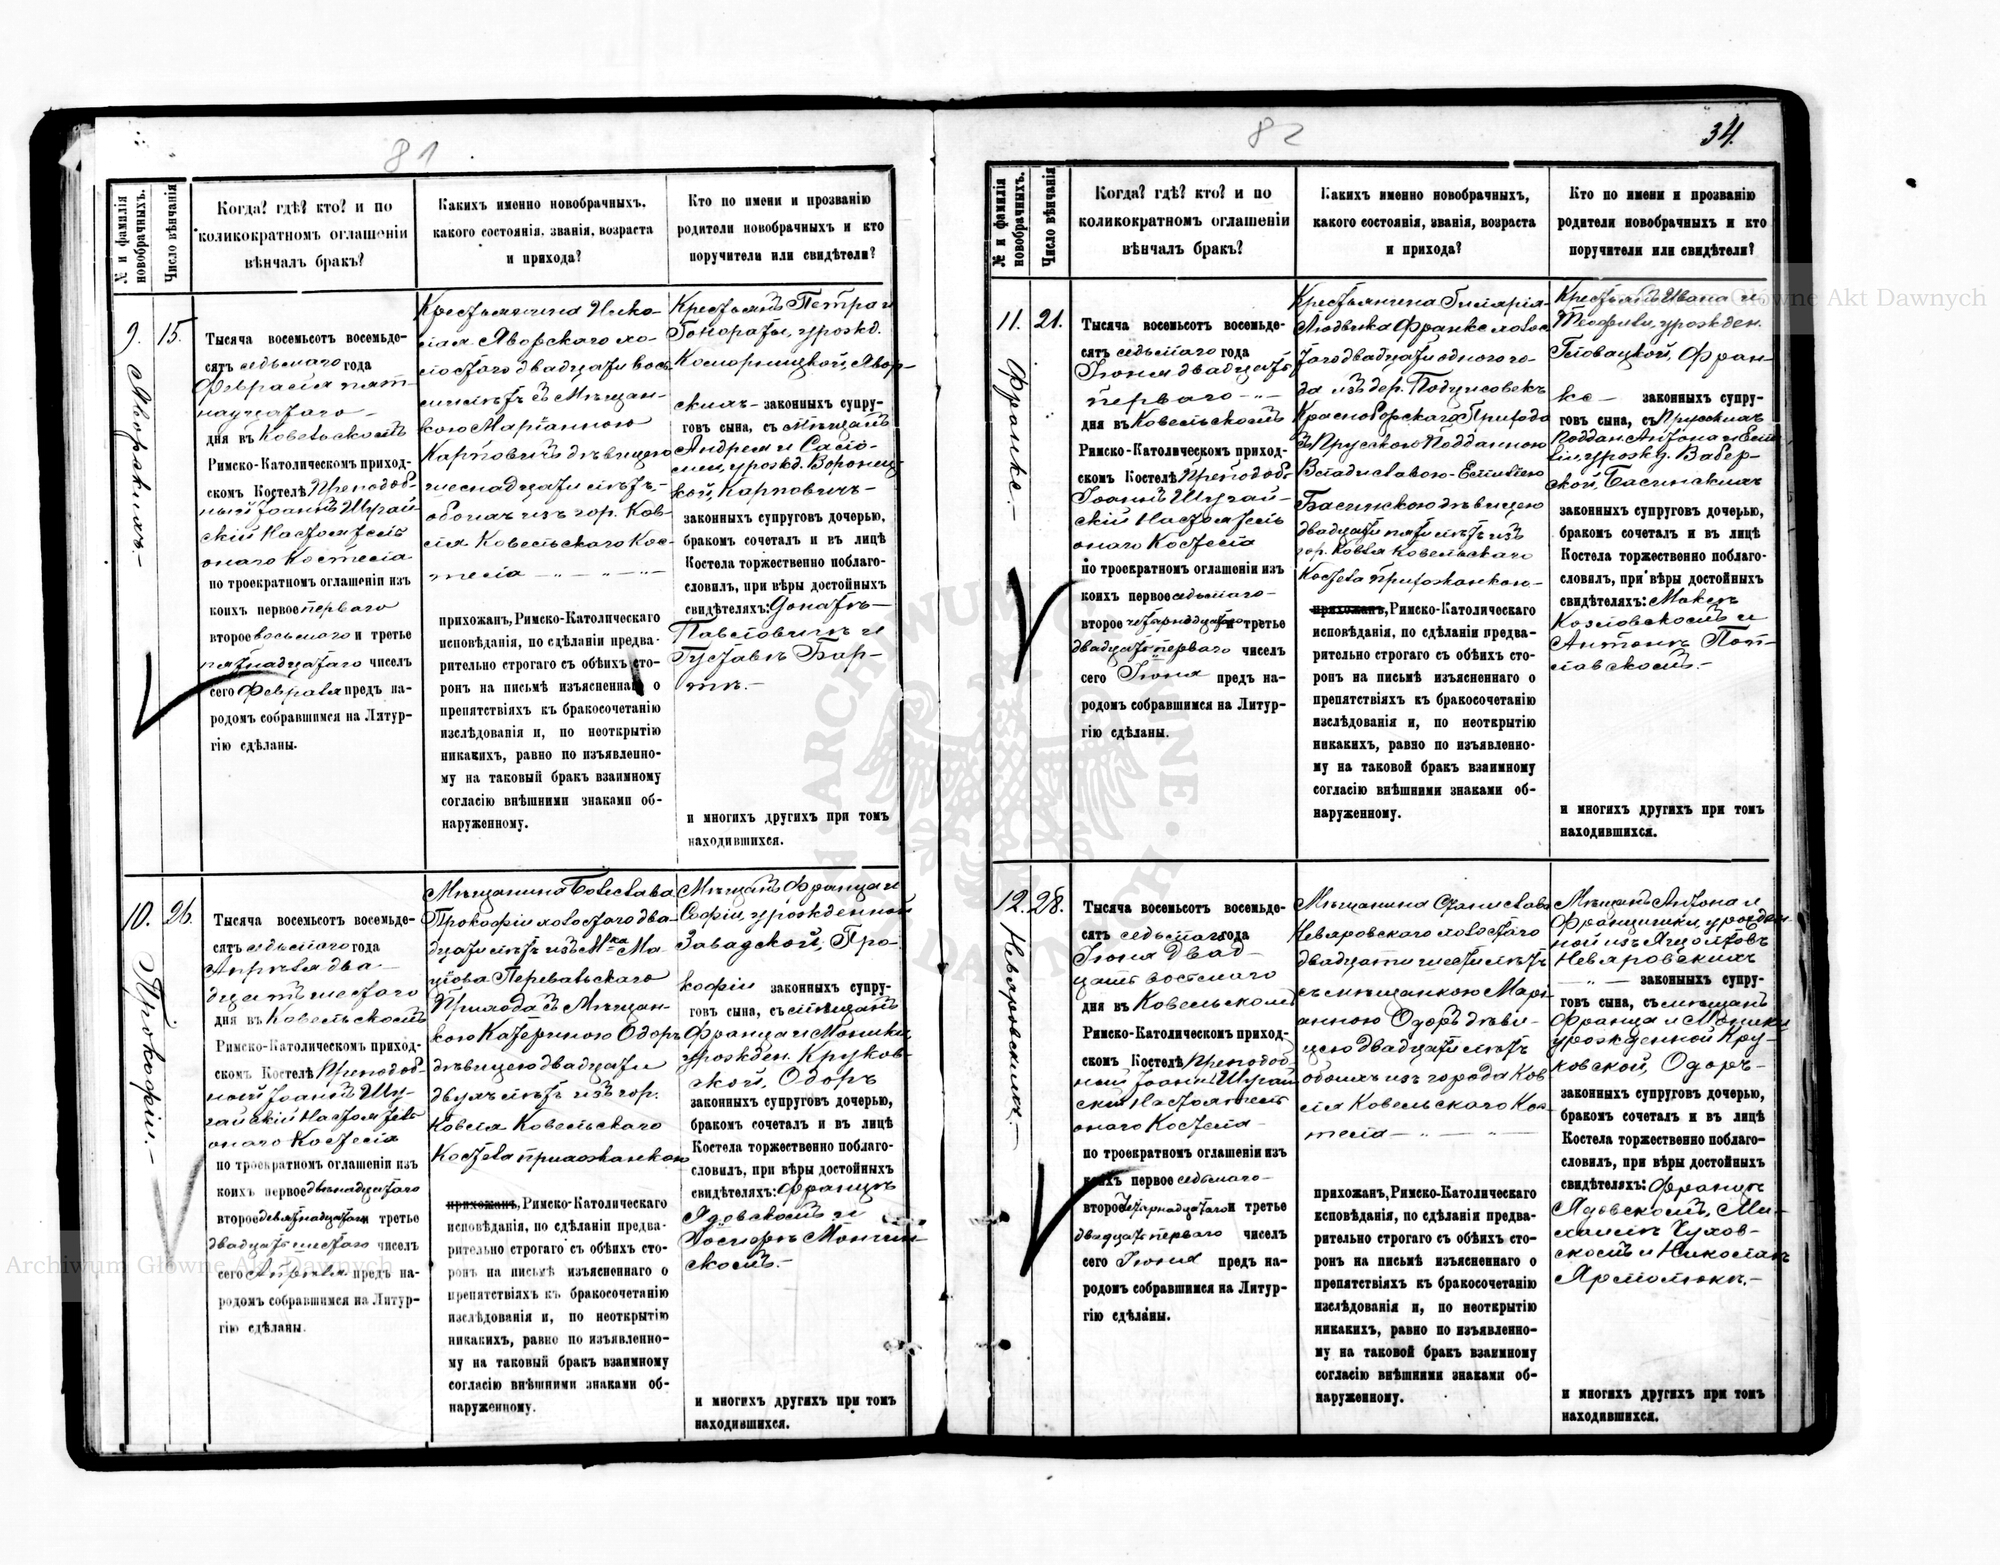 81
№ и фамилія новобрачныхъ.
Число вѣнчанія
Когда? гдѣ? кто? и по
коликократномъ оглашеніи
вѣнчалъ бракъ?
Какихъ именно новобрачныхъ,
какого состоянія, званія, возраста
и прихода?
Кто по имени и прозванію
родители новобрачныхъ и кто
поручители или свидѣтели?
9.
Яворскихъ.-
15.
Тысяча восемьсотъ восемьде-
сятъ седьмаго года
Февраля пят-
надцатаго -
дня въ Ковельскомъ
Римско-Католическомъ приход-
скомъ Костелѣ Преподоб-
ный Іоаннъ Шугай-
скій Настоятель
онаго Костела
по троекратномъ оглашеніи изъ
коихъ первое перваго
второе восьмаго и третье
пятнадцатаго чиселъ
сего Февраля предъ на-
родомъ собравшимся на Литур-
гію сдѣланы.
Крестьянина Нико-
лая Яворскаго хо-
лостаго двадцати вось-
ми лѣтъ съ Мѣщан-
кою Маріанною
Карповичъ дѣвицею
шеснадцати лѣтъ,-
обоихъ изъ гор. Ков-
ля Ковельскаго Кос-
тела
прихожанъ, Римско-Католическаго
исповѣданія, по сдѣланіи предва-
рительно строгаго съ обѣихъ сто-
ронъ на письмѣ изъясненнаго о
препятствіяхъ къ бракосочетанію
изслѣдованія и, по неоткрытію
никакихъ, равно по изъявленно-
му на таковый бракъ взаимному
согласію внѣшними знаками об-
наруженному.
Крестьянъ Петра и
Гонораты, урожд.
Коморницкой, Явор-
скихъ - законныхъ супру-
говъ сына, съ Мѣщанъ
Андрея и Сало-
меи, урожд. Воронец-
кой, Карповичъ-
законныхъ супруговъ дочерью,
бракомъ сочеталъ и въ лицѣ
Костела торжественно поблаго-
словилъ, при вѣры достойныхъ
свидѣтеляхъ: Донатѣ-
Павловичѣ и
Густавѣ Бар-
и многихъ другихъ при томъ
находившихся.
10.
Прокофіи.-
26.
Тысяча восемьсотъ восемьде-
сятъ седьмаго года
Апрѣля два-
дцать шестаго
дня въ Ковельскомъ
Римско-Католическомъ приход-
скомъ Костелѣ Преподоб-
ный Іоаннъ Шу-
гайскій Настоятель
онаго Костела
по троекратномъ оглашеніи изъ
коихъ первое двѣнадцатаго
второе девятнадцатаго и третье
двадцать шестаго чиселъ
сего Апрѣля предъ на-
родомъ собравшимся на Литур-
гію сдѣланы.
Мѣщанина Болеслава
Прокофіи холостаго два-
дцати лѣтъ изъ М-ка Ма-
ціова Перевальскаго
Прихода съ Мѣщан-
кою Катериною Одоръ
дѣвицею двадцати
двухъ лѣтъ изъ гор.
Ковля Ковельскаго
Костела прихожанкою
прихожанъ, Римско-Католическаго
исповѣданія, по сдѣланіи предва-
рительно строгаго съ обѣихъ сто-
ронъ на письмѣ изъясненнаго о
препятствіяхъ къ бракосочетанію
изслѣдованія и, по неоткрытію
никакихъ, равно по изъявленно-
му на таковый бракъ взаимному
согласію внѣшними знаками об-
наруженному.
Мѣщанъ Франца и
Софіи, урожденной
Завадской, Про-
кофіи законныхъ супру-
говъ сына, съ мѣщанъ
Франца и Моники
урожден. Круков-
ской, Одоръ
законныхъ супруговъ дочерью,
бракомъ сочеталъ и въ лицѣ
Костела торжественно поблаго-
словилъ, при вѣры достойныхъ
свидѣтеляхъ: Францѣ
Ядовскомъ и
скомъ.-
и многихъ другихъ при томъ
находившихся.
82
34.
№ и фамилія новобрачныхъ.
Число вѣнчанія
Когда? гдѣ? кто? и по
коликократномъ оглашеніи
вѣнчалъ бракъ?
Какихъ именно новобрачныхъ,
какого состоянія, званія, возраста
и прихода?
Кто по имени и прозванію
родители новобрачныхъ и кто
поручители или свидѣтели?
11.
Франке.-
21.
Тысяча восемьсотъ восемьде-
сятъ седьмаго года
Іюня двадцать
перваго
дня въ Ковельскомъ
Римско-Католическомъ приход-
скомъ Костелѣ Преподоб-
Іоаннъ Шугай-
скій Настоятель
онаго Костела
по троекратномъ оглашеніи изъ
коихъ первое седьмаго-
второе четырнадцатаго и третье
двадцать перваго чиселъ
сего Іюня предъ на-
родомъ собравшимся на Литур-
гію сдѣланы.
Крестьянина Гиларія-
Людвика Франке холос-
таго двадцати одного го-
да изъ дер. Подлисовекъ
Красноборскаго Прихода
съ Прусскою Подданною
Владиславою-Емиліею
Басинскою дѣвицею
двадцати пяти лѣтъ изъ
гор. Ковля Ковельскаго
Костела прихожанкою-
прихожанъ, Римско-Католическаго
исповѣданія, по сдѣланіи предва-
рительно строгаго съ обѣихъ сто-
ронъ на письмѣ изъясненнаго о
препятствіяхъ къ бракосочетанію
изслѣдованія и, по неоткрытію
никакихъ, равно по изъявленно-
му на таковой бракъ взаимному
согласію внѣшними знаками об-
наруженному.
Крестьянъ Ивана и
Теофили, урожден.
Гловацкой, Фран-
ке- законныхъ супру-
говъ сына, съ Прусскихъ
Поддан. Антона и Еми-
ліи, урожд. Вабер-
ской, Басинскихъ
законныхъ супруговъ дочерью,
бракомъ сочеталъ и въ лицѣ
Костела торжественно поблаго-
словилъ, при вѣры достойныхъ
свидѣтеляхъ: Макс.
Козловскомъ и
Антонѣ Поп-
лавскомъ.-
и многихъ другихъ при томъ
находившихся.
12.
Невяровскихъ.-
28.
Тысяча восемьсотъ восемьде-
сятъ седьмаго года
Іюня Двад-
цать восьмаго
дня въ Ковельскомъ
Римско-Католическомъ приход-
скомъ Костелѣ Преподоб-
ный Іоаннъ Шугай-
скій Настоятель
онаго Костела-
по троекратномъ оглашеніи изъ
коихъ первое седьмаго-
второе четырнадцатаго и третье
двадцать перваго чиселъ
сего Іюня предъ на-
родомъ собравшимся на Литур-
гію сдѣланы.
Мѣщанина Станислава
Невяровскаго холостаго
двадцати шести лѣтъ
съ мѣщанкою Марі-
анною Одоръ дѣви-
цею двадцати лѣтъ
обоихъ изъ города Ков-
ля Ковельскаго Кос-
тела
прихожанъ, Римско-Католическаго
исповѣданія, по сдѣланіи предва-
рительно строгаго съ обѣихъ сто-
ронъ на письмѣ изъясненнаго о
препятствіяхъ къ бракосочетанію
изслѣдованія и, по неоткрытію
никакихъ, равно по изъявленно-
му на таковой бракъ взаимному
согласію внѣшними знаками об-
наруженному.
Мѣщанъ Антона и
Францишки, урожден-
ной изъ
Невяровскихъ
законныхъ супру-
говъ сына, съ мѣщанъ
Франца и Моники
урожденной Кру-
ковской, Одоръ-
законныхъ супруговъ дочерью,
бракомъ сочеталъ и въ лицѣ
Костела торжественно поблаго-
словилъ, при вѣры достойныхъ
свидѣтеляхъ: Францѣ
Ядовскомъ, Ми-
хаилѣ Чухов-
скомъ и Николаѣ
Ярмолюкѣ.-
и многихъ другихъ при томъ
находившихся.
Archiwum Główne Akt Dawnych
Główne Akt Dawnych
ARCHIWUM GŁÓWNE AKT DAWNYCH